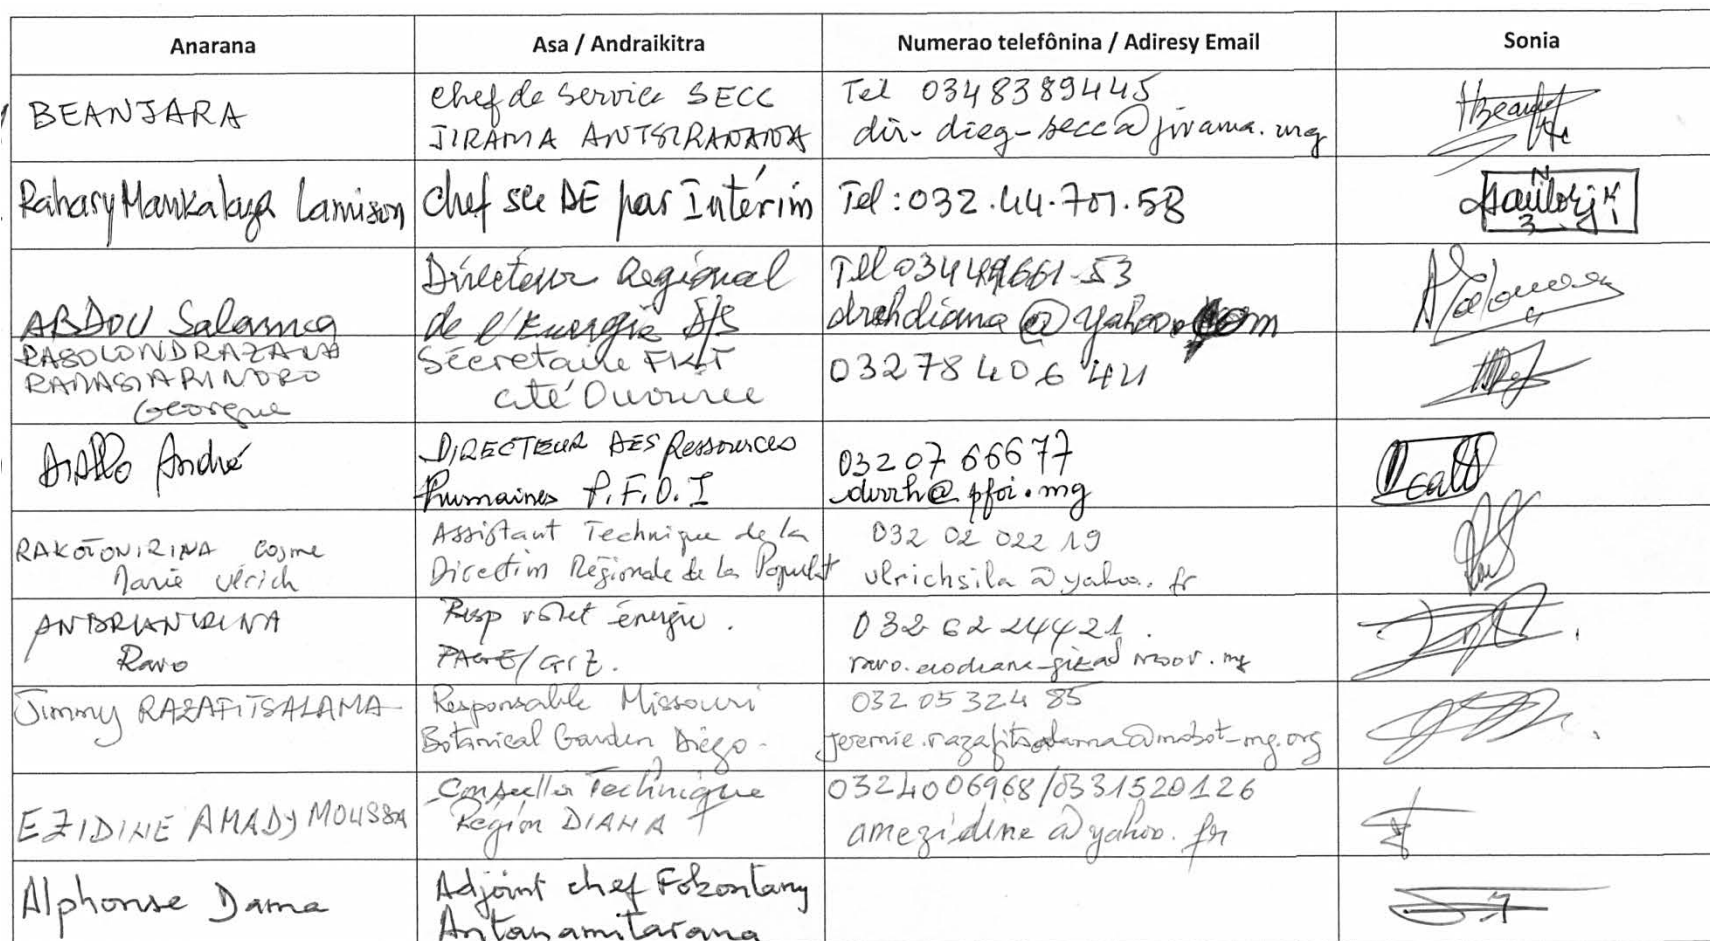 Anarana
Asa / Andraikitra
Numerao telefônina / Adiresy Email
Sonia
BEANJARA
chef de Service SECC
JIRAMA ANTSIRANANA
Tel 0348389445
dir-dieg-secc@jirama.mg
Rahary Lamison
Chef sce DE par Intérim
Tel : 032.44.701.58
ABDOU Salama
Directeur Régional
de l'Energie D/S
Tel 034 661-53
drehdiana@yahoo.com
RASOLONDRAZANA
RANAGIARINORO
Georgine
Sécretaire FKT
cité Ouvriere
03278 406 44
Diallo André
DIRECTEUR DES Ressources
Humaines P.F.O.I
032 07 66677
durrh@pfoi.mg
RAKOTONIRINA Cosme
Marie Ulrich
Assistant Technique de la
Direction Régionale de la Populat
032 02 022 19
ulrichsila@yahoo.fr
ANDRIANIRINA
Ravo
Resp volet énergie.
PAGE/GIZ.
032 62 24421.
Jimmy RAZAFITSALAMA
Responsable Missouri
Botanical Garden Diego-
032 05 324 85
jeremie.razafitsalama@mobot-mg.org
EZIDINE AMADY MOUSSA
Conseiller Technique
Région DIANA
0324006968/0331520126
amezidine@yahoo.fr
Alphonse Dama
Adjoint chef Fokontany
Antanamitarana